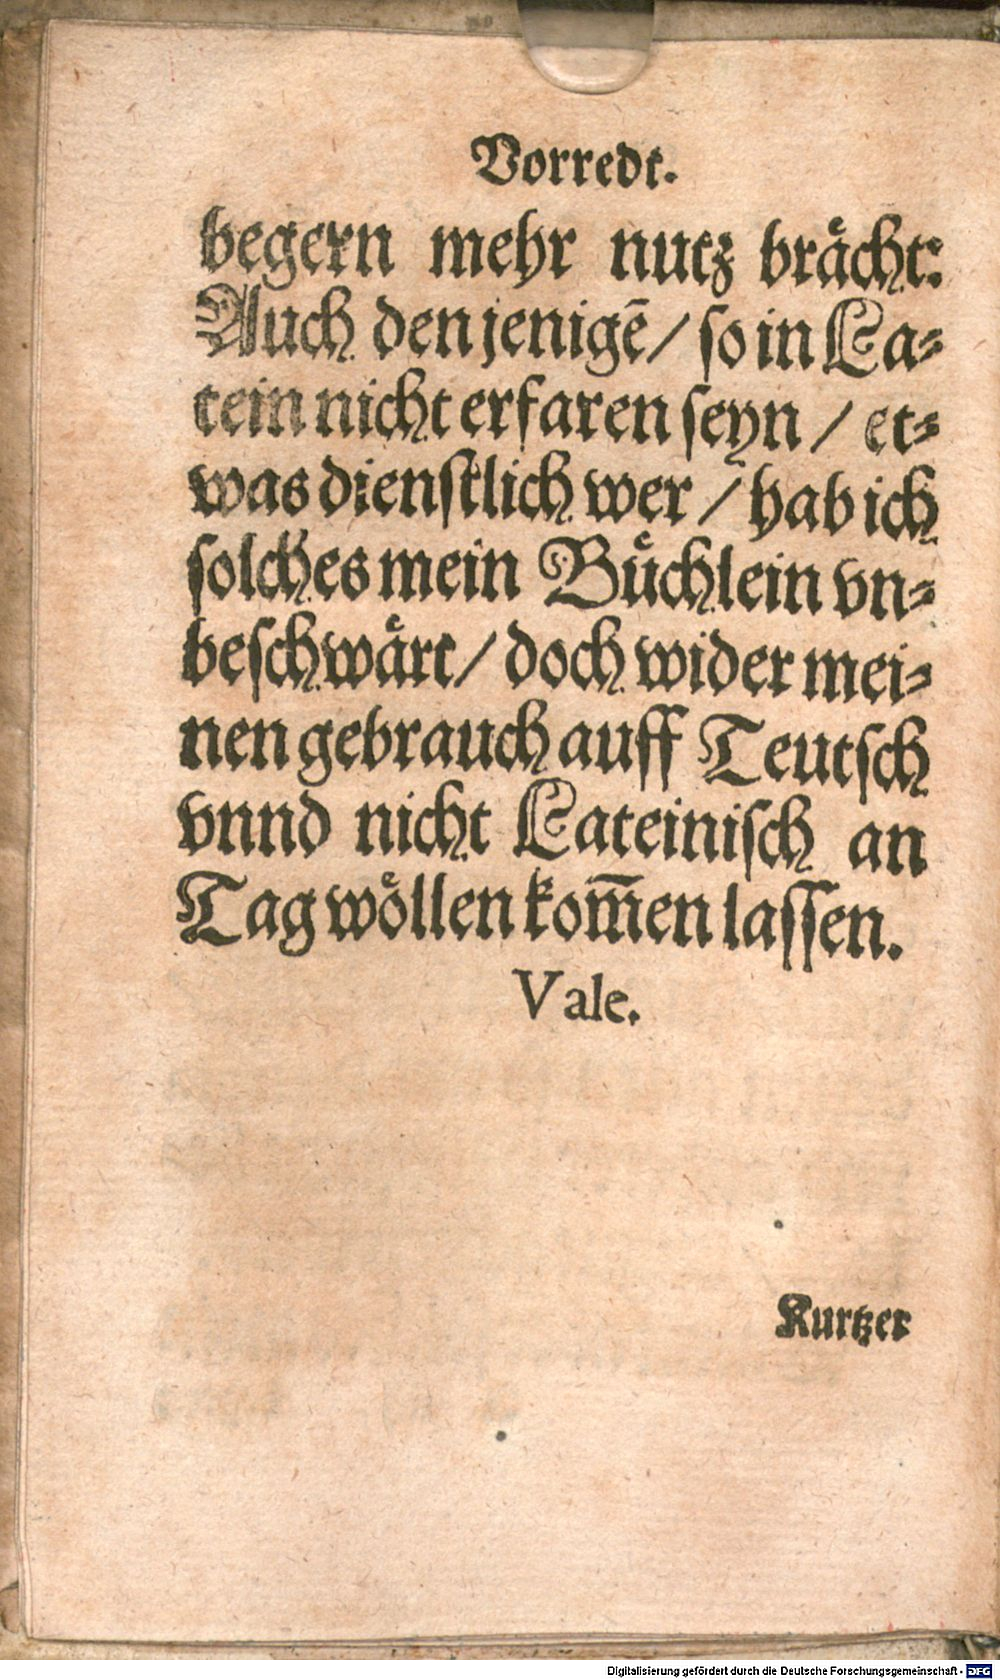 Vorredt.
begern mehr nutz brächt:
Auch den jenigē / so in La-
tein nicht erfaren seyn / et-
was dienstlich wer / hab ich
solches mein Büchlein vn-
beschwärt / doch wider mei-
nen gebrauch auff Teutsch
vnnd nicht Lateinisch an
Tag wöllen kom̄en lassen.
Vale.
Kurtzer
Digitalisierung gefördert durch die Deutsche Forschungsgemeinschaft - DFG